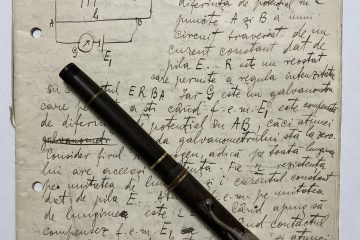 diferența de potențial între
A
B
l
G
E₁
punctele A și B a unui
circuit traversat de un
curent constant dat de
pila E. R este un reostat
care permite a regula intensitatea
în circuitul ERBA iar G este un galvanometru
care permite a ști când f.e.m. E₁ este compensată
de diferența de potențial în AB, căci atunci
galvanometrul stă la zero.
Consider firul adică pe toată lungimea
lui are aceeași Fie rezistența
pe unitatea de lungime și i curentul constant
dat de pila E. pe unitatea
de lungime este Când apuc să
compensez f.e.m. E₁ contactul